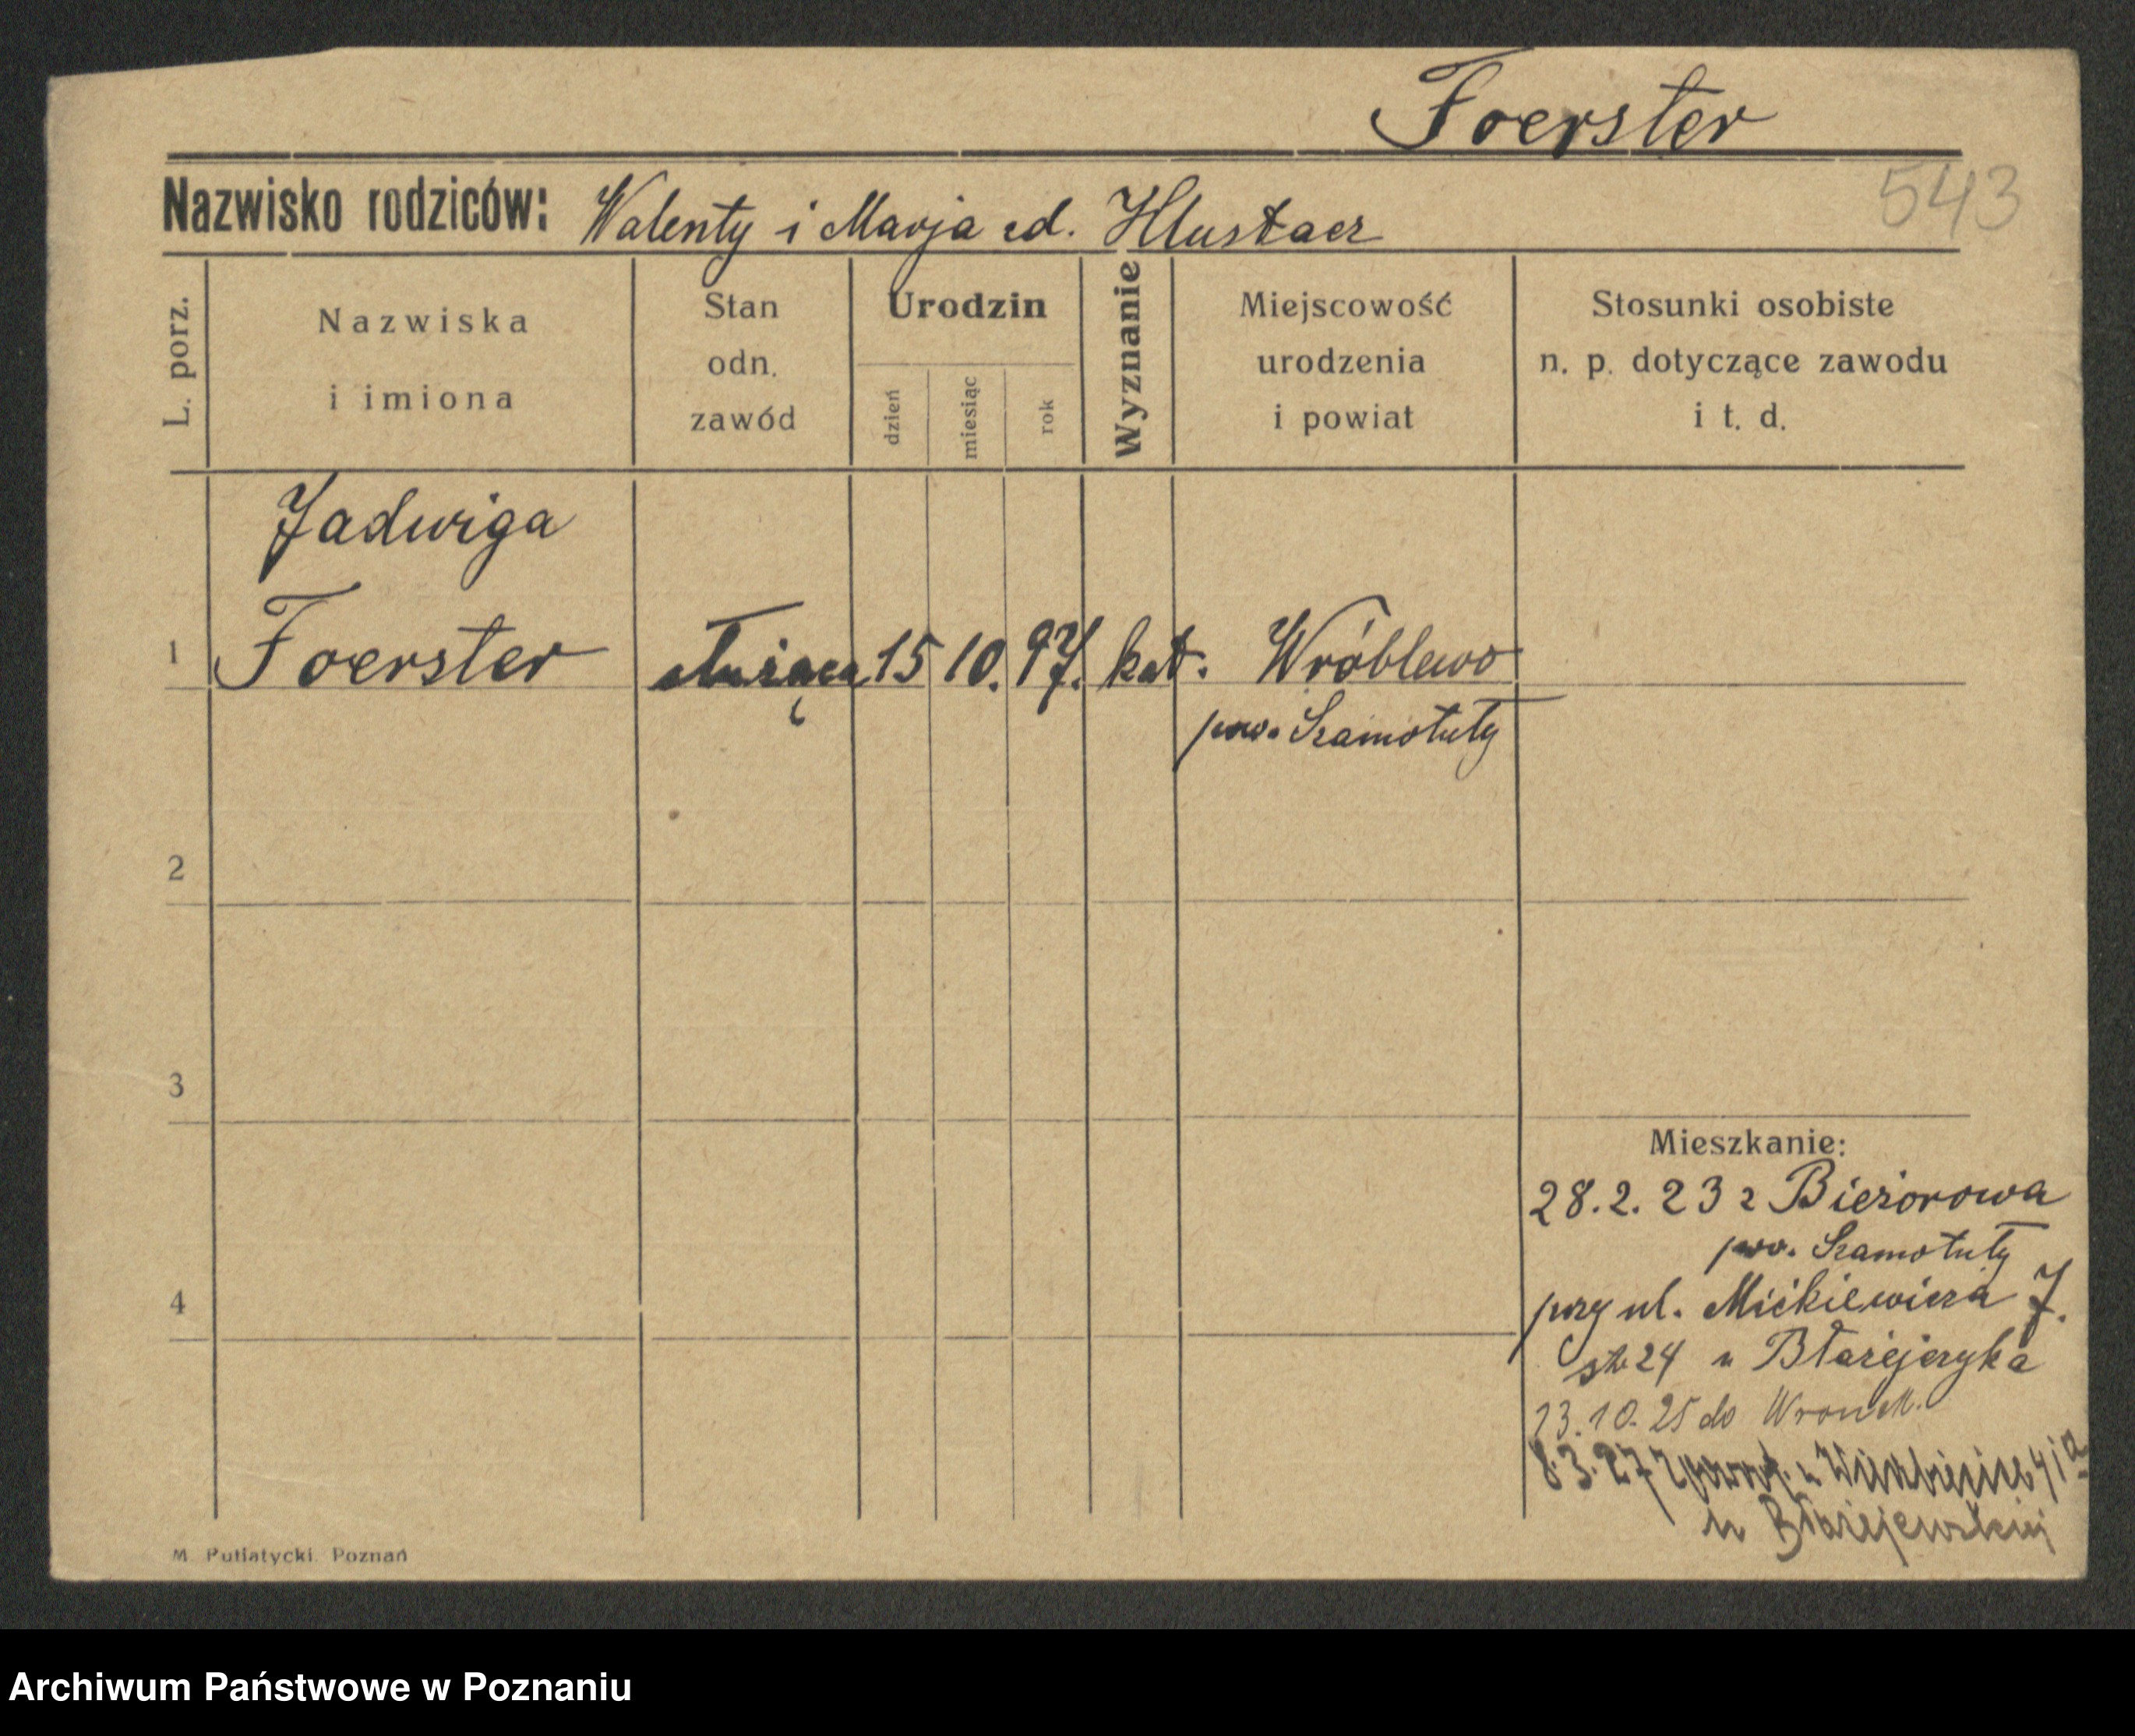 Foerster
543
Nazwisko rodziców: Walenty i Marja zd. Hlustacz
L. porz.
Nazwiska i imiona
Stan odn. zawód
Urodzin
dzień
miesiąc
rok
Wyznanie
Miejscowość urodzenia i powiat
Stosunki osobiste n. p. dotyczące zawodu i t. d.
Jadwiga
1 Foerster służąca 15 10. 97. kat. Wróblewo
pow. Szamotuły
2
3
Mieszkanie:
28.2.23 z Bieżorowa
pow. Szamotuły
4
przy ul. Mickiewicza J.
24 u Błażejczyka
13.10.25 do Wronek.
8.3.27 z u 41a
u Błażejewskiej
M. Putiatycki. Poznań
Archiwum Państwowe w Poznaniu